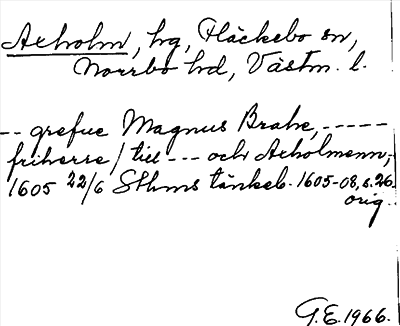 Axholm, hg, Fläckebo sn,
Norrbo hd, Västm. l.
-- grefue Magnus Brahe, -----
friherre / till --- och Axholmenn,
1605 22/6 Sthms tänkeb. 1605-08, s. 26.
orig.
G.E. 1966.